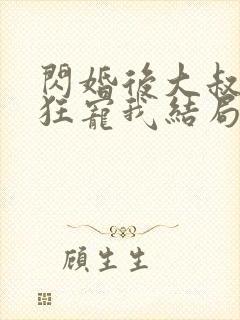 閃婚後大叔
狂寵我結局
顧生生